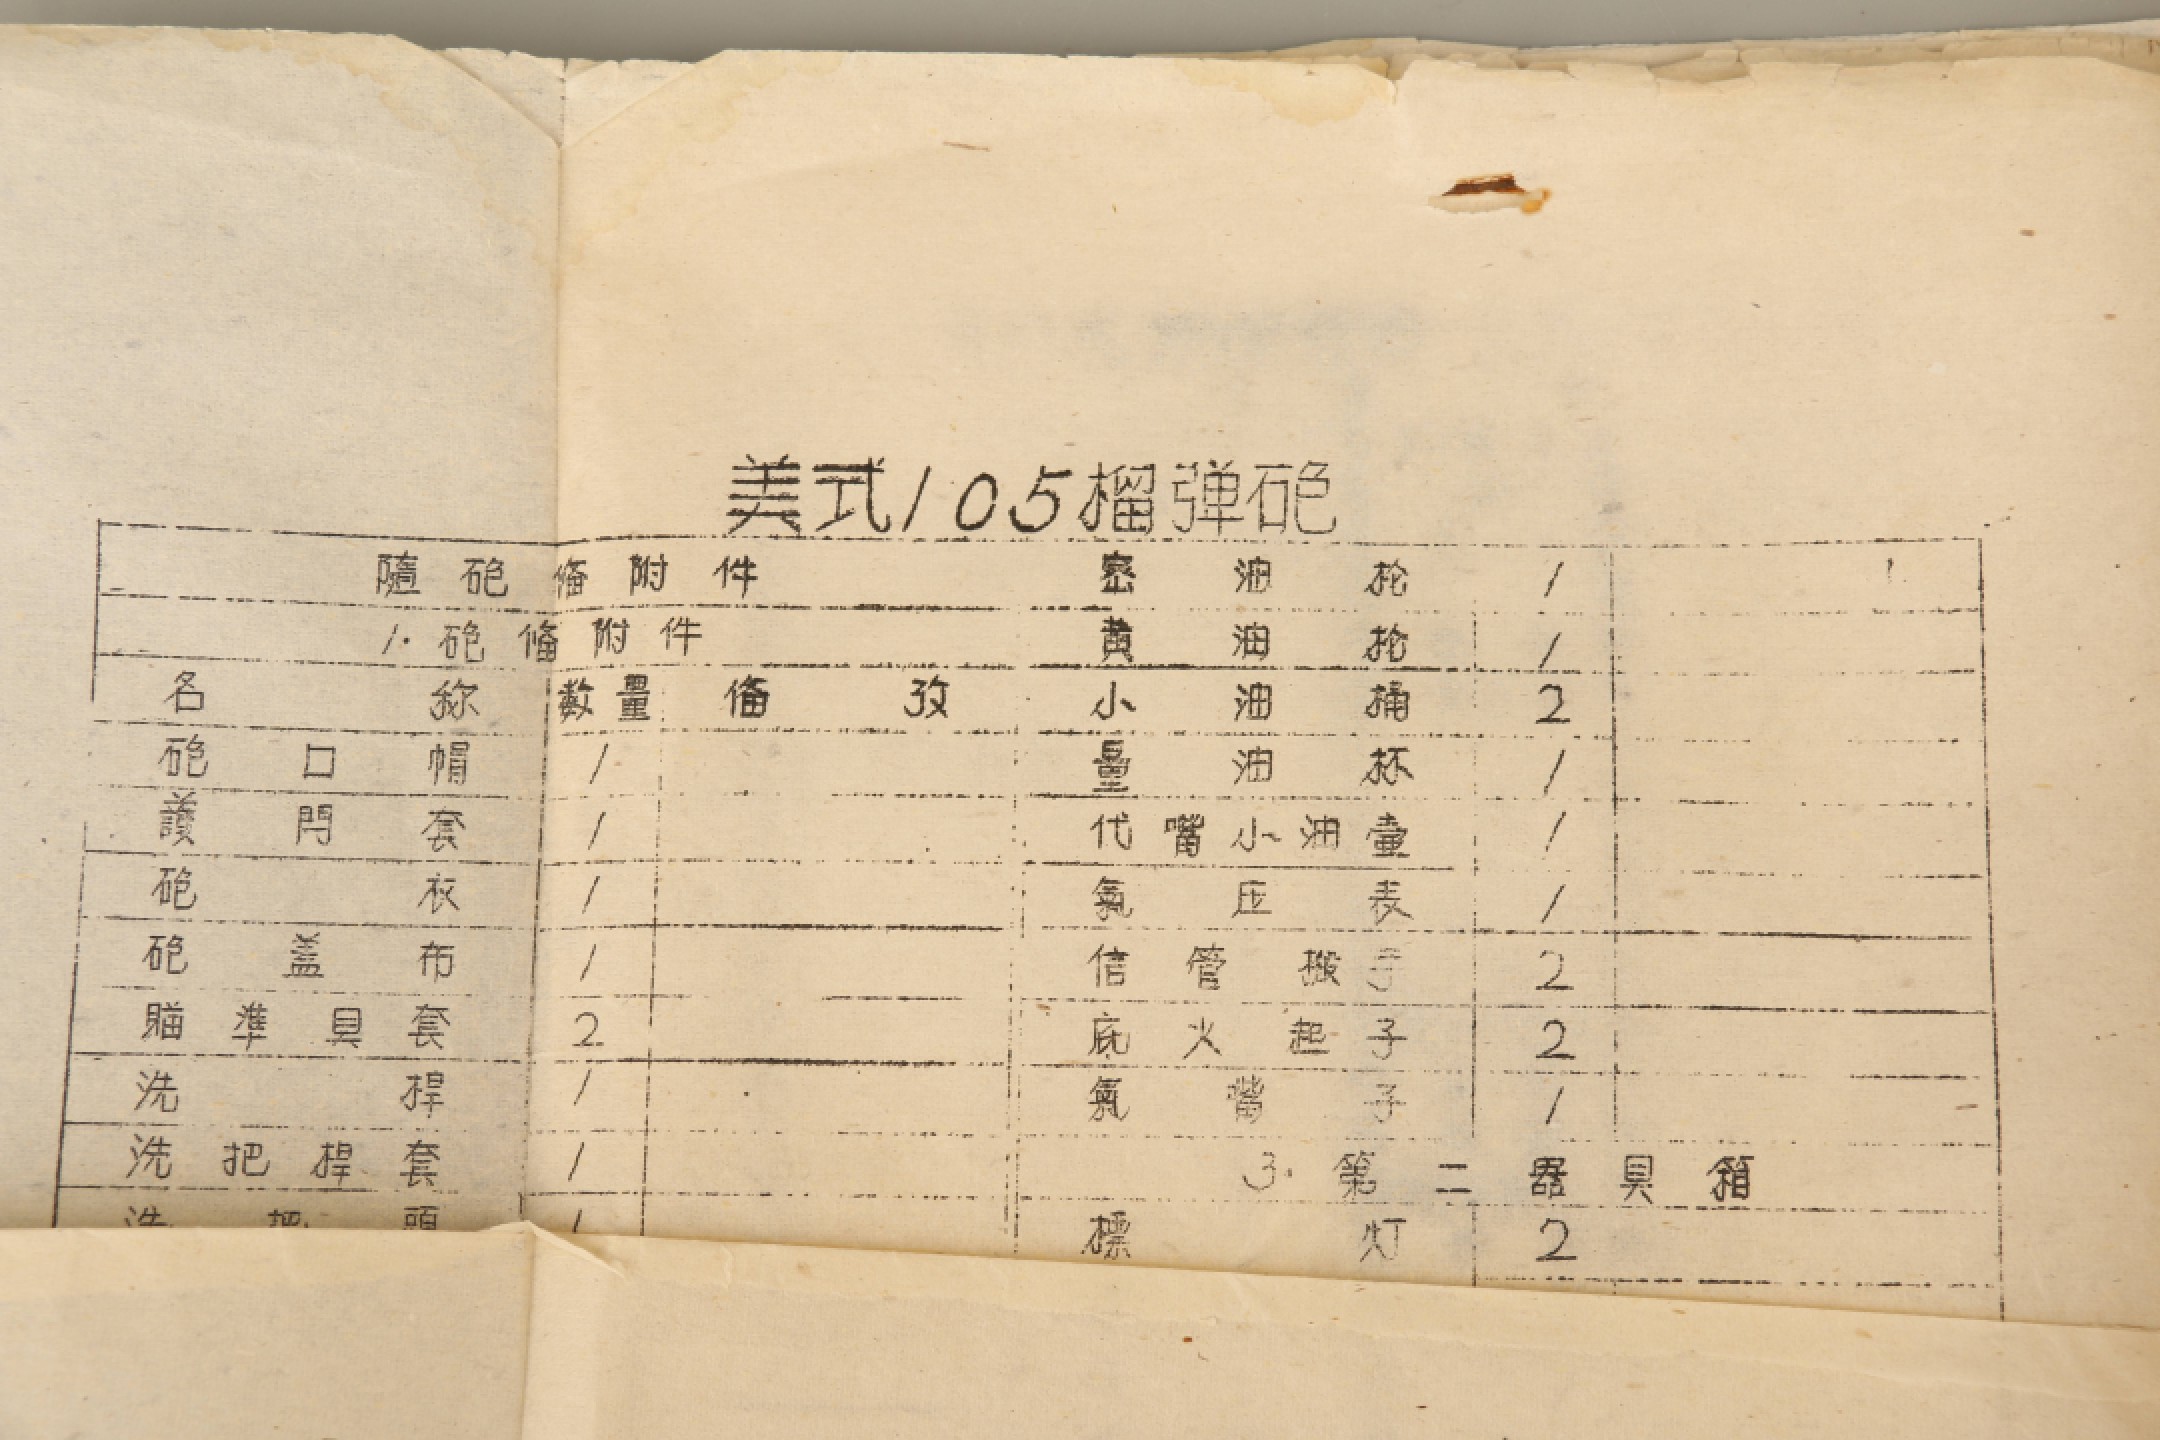 美式105榴弹砲
隨砲俻附件
1. 砲俻附件
名称 数量 俻攷
砲口帽 1
護閂套 1
砲衣 1
砲蓋布 1
瞄準具套 2
洗桿 1
洗把桿套 1
洗把頭 1
密油抡 1
黄油抡 1
小油桶 2
量油杯 1
代嘴小油壷 1
氣压表 1
信管搬子 2
底火起子 2
氣嘴子 1
3. 第二器具箱
標灯 2